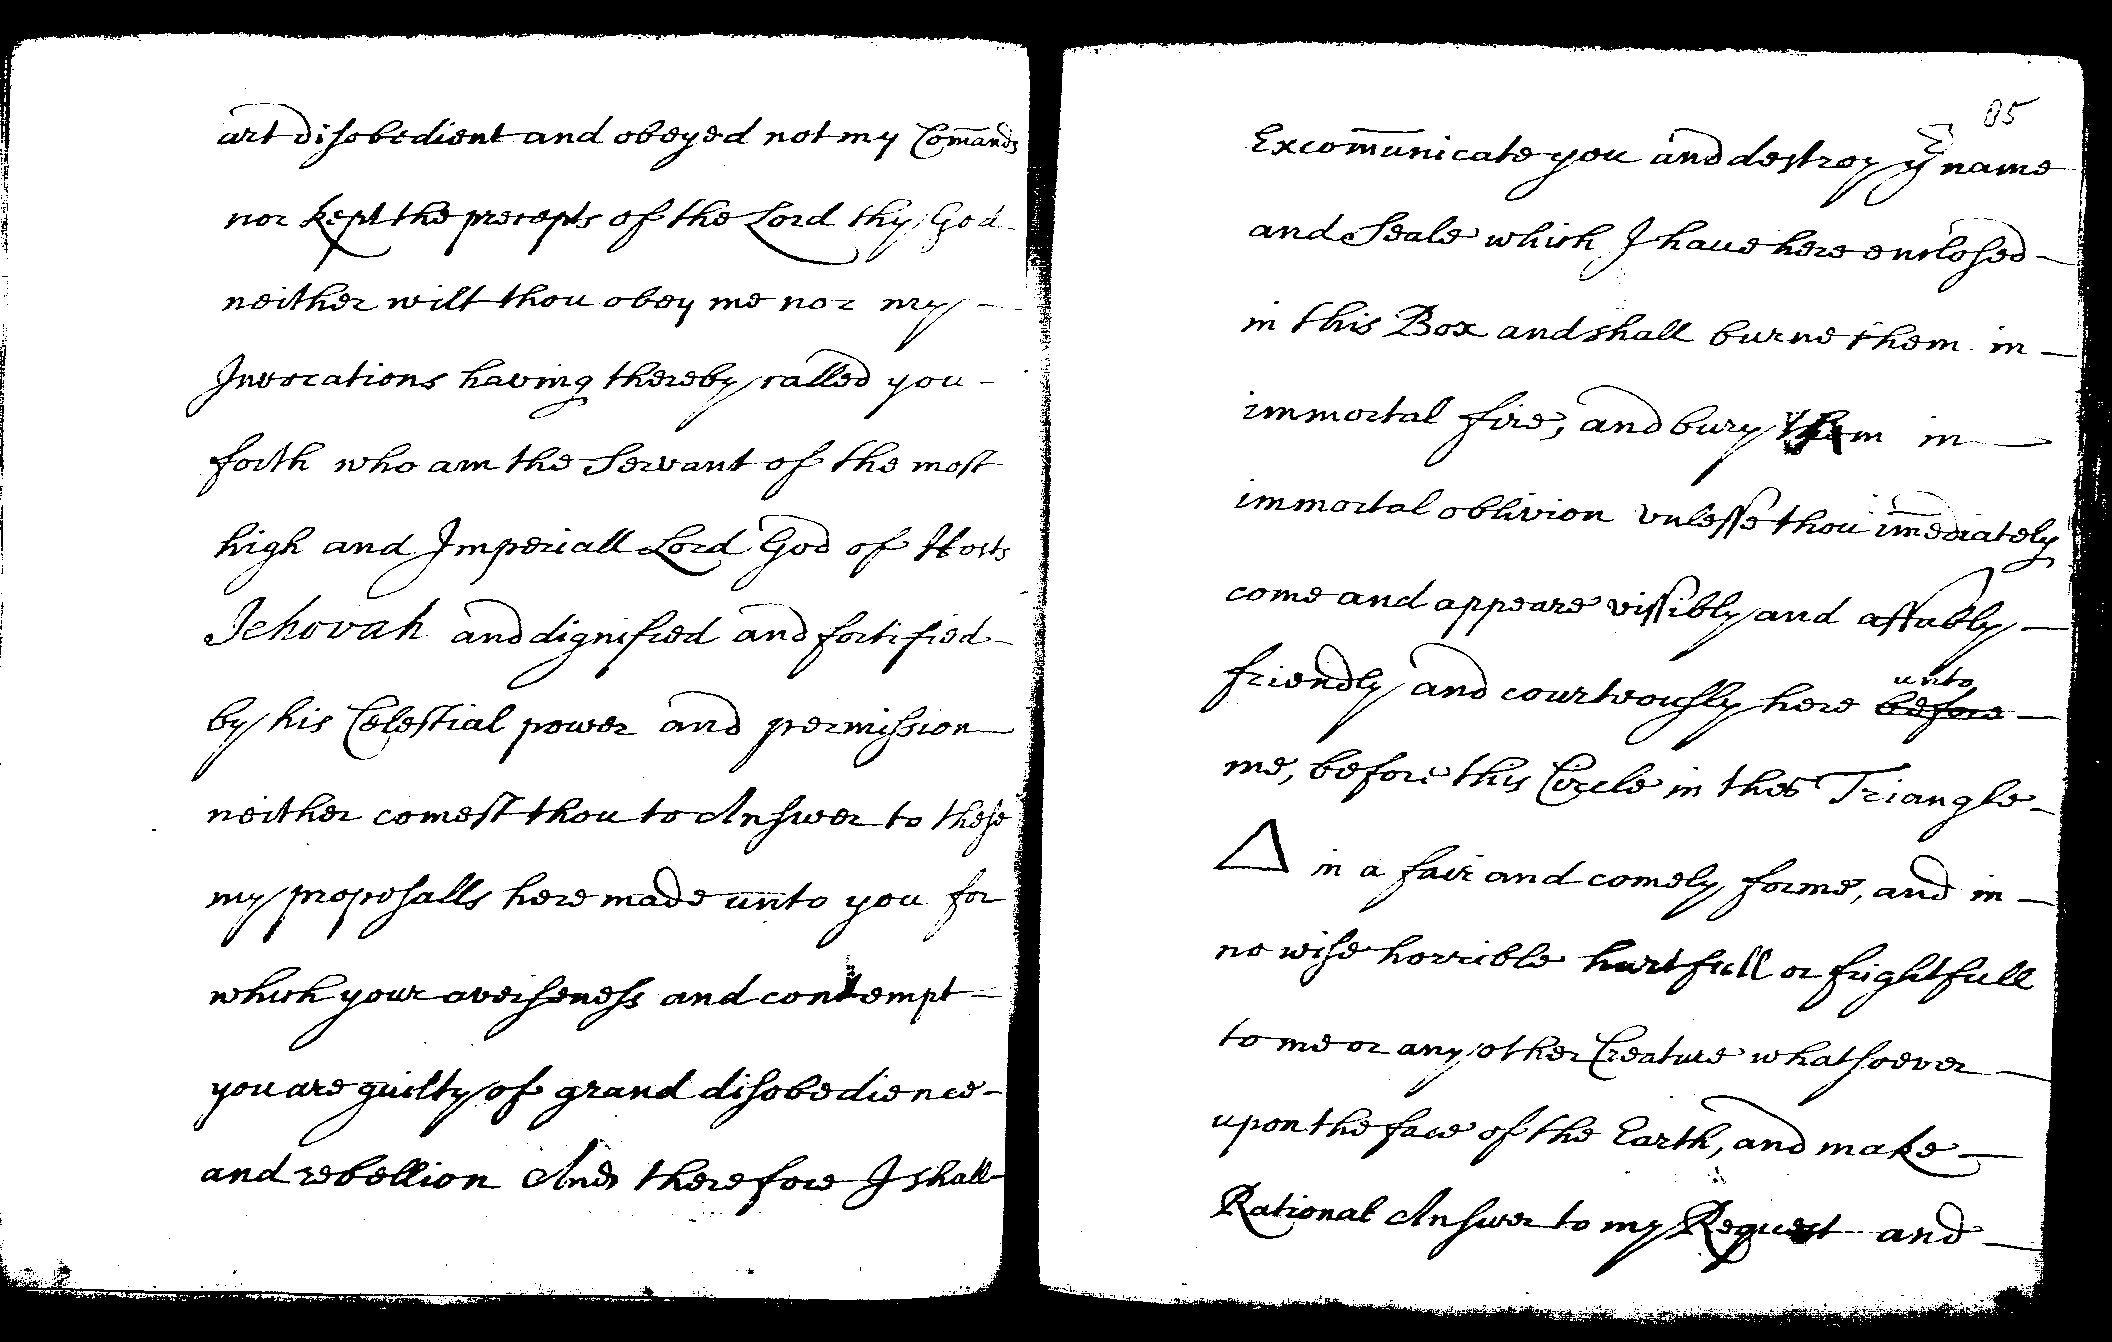 art disobedient and obeyed not my Com̄ands
nor kept the precepts of the Lord thy God
neither wilt thou obey me nor my –
Invocations having thereby called you –
forth who am the Servant of the most
high and Imperiall Lord God of Hosts
Jehovah and dignified and fortified –
by his Celestial power and permission
neither comest thou to Answer to these
my proposalls here made unto you for
which your averseness and contempt –
you are guilty of grand disobedience –
and rebellion And therefore I shall
85
Excom̄unicate you and destroy yͤ name
and Seale which I haue here enclosed –
in this Box and shall burne them in –
immortal fire, and bury them in –
immortal oblivion vnlesse thou im̄ediately
come and appeare vissibly and affably –
friendly and courteously here before unto –
me, before this Circle in this Triangle –
△ in a fair and comely forme, and in –
no wise horrible hurtfull or frightfull
to me or any other Creature whatsoever –
upon the face of the Earth, and make –
Rational Answer to my Request and –